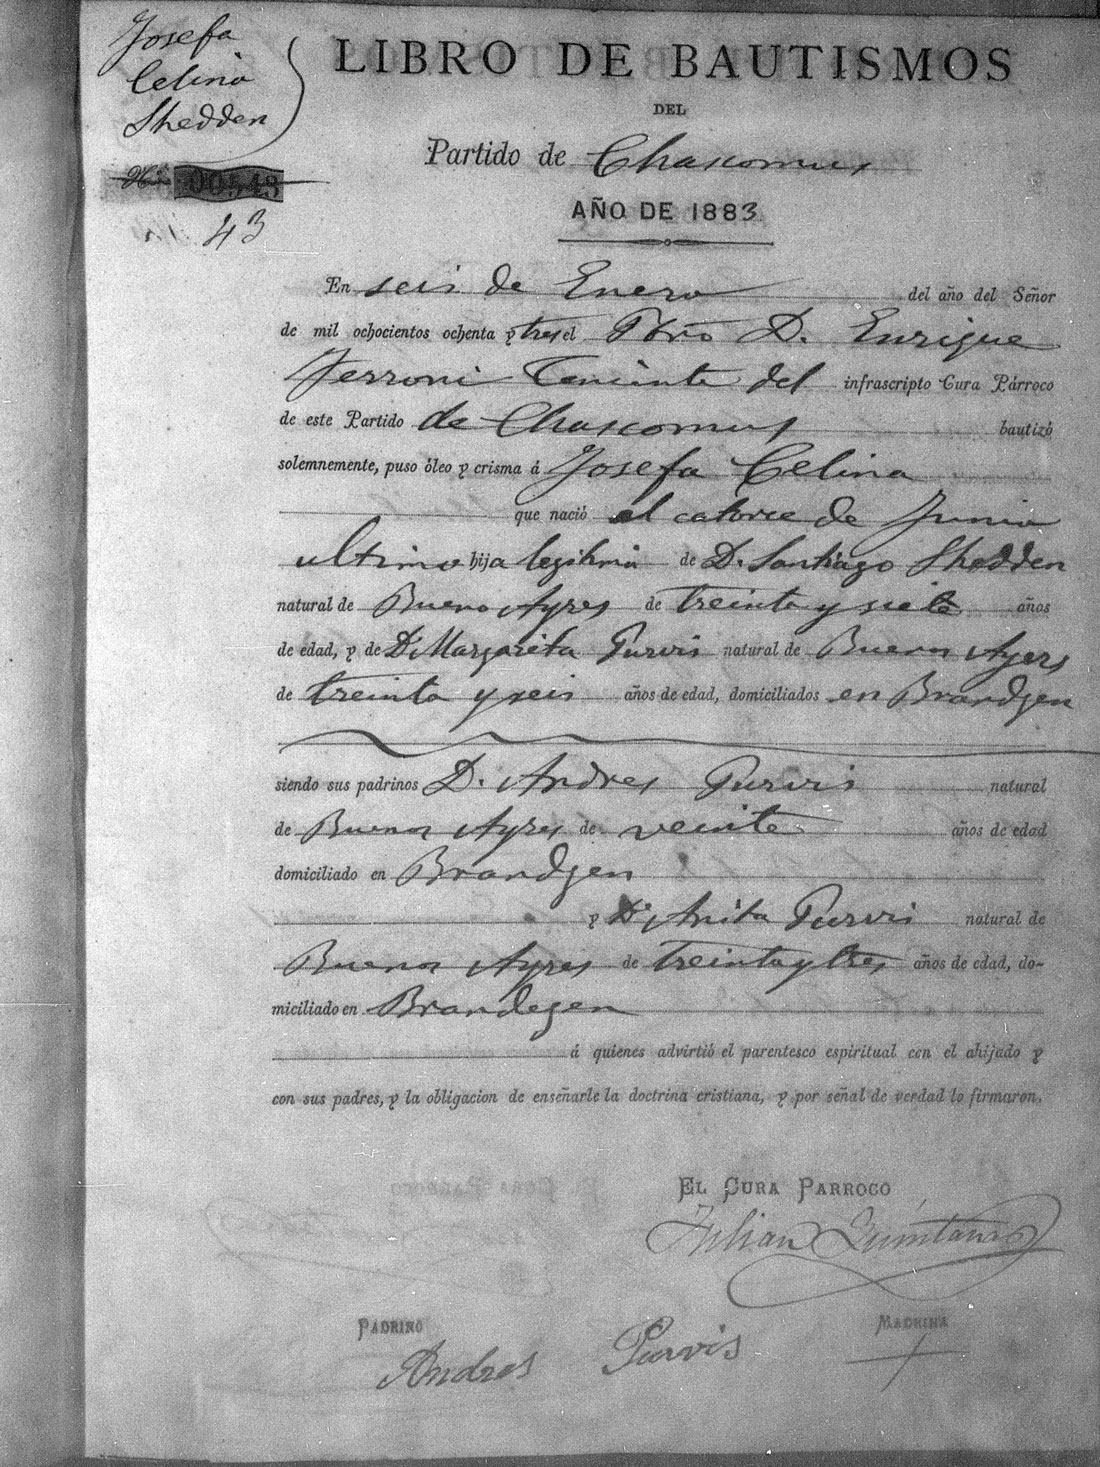 Josefa
Celina
Shedden
00548
43
LIBRO DE BAUTISMOS
DEL
Partido de Chascomus
AÑO DE 1883
En seis de Enero del año del Señor
de mil ochocientos ochenta y tres el Pbro D. Enrique
Ferroni Teniente del infrascripto Cura Párroco
de este Partido de Chascomus bautizó
solemnemente, puso óleo y crisma á Josefa Celina
que nació el catorce de Junio
ultimo hija legitima de D. Santiago Shedden
natural de Bueno Ayres de treinta y siete años
de edad, y de Da Margarita Purvis natural de Buenos Ayers
de treinta y seis años de edad, domiciliados en Brandzen
siendo sus padrinos D. Andres Purvis natural
de Buenos Ayres de veinte años de edad
domiciliado en Brandzen
y Da Anita Purvis natural de
Buenos Ayres de treinta y tres años de edad, do-
miciliado en Brandegen
á quienes advirtió el parentesco espiritual con el ahijado y
con sus padres, y la obligacion de enseñarle la doctrina cristiana, y por señal de verdad lo firmaron.
EL CURA PARROCO
Julian Quintana
PADRINO MADRINA
Andres Purvis